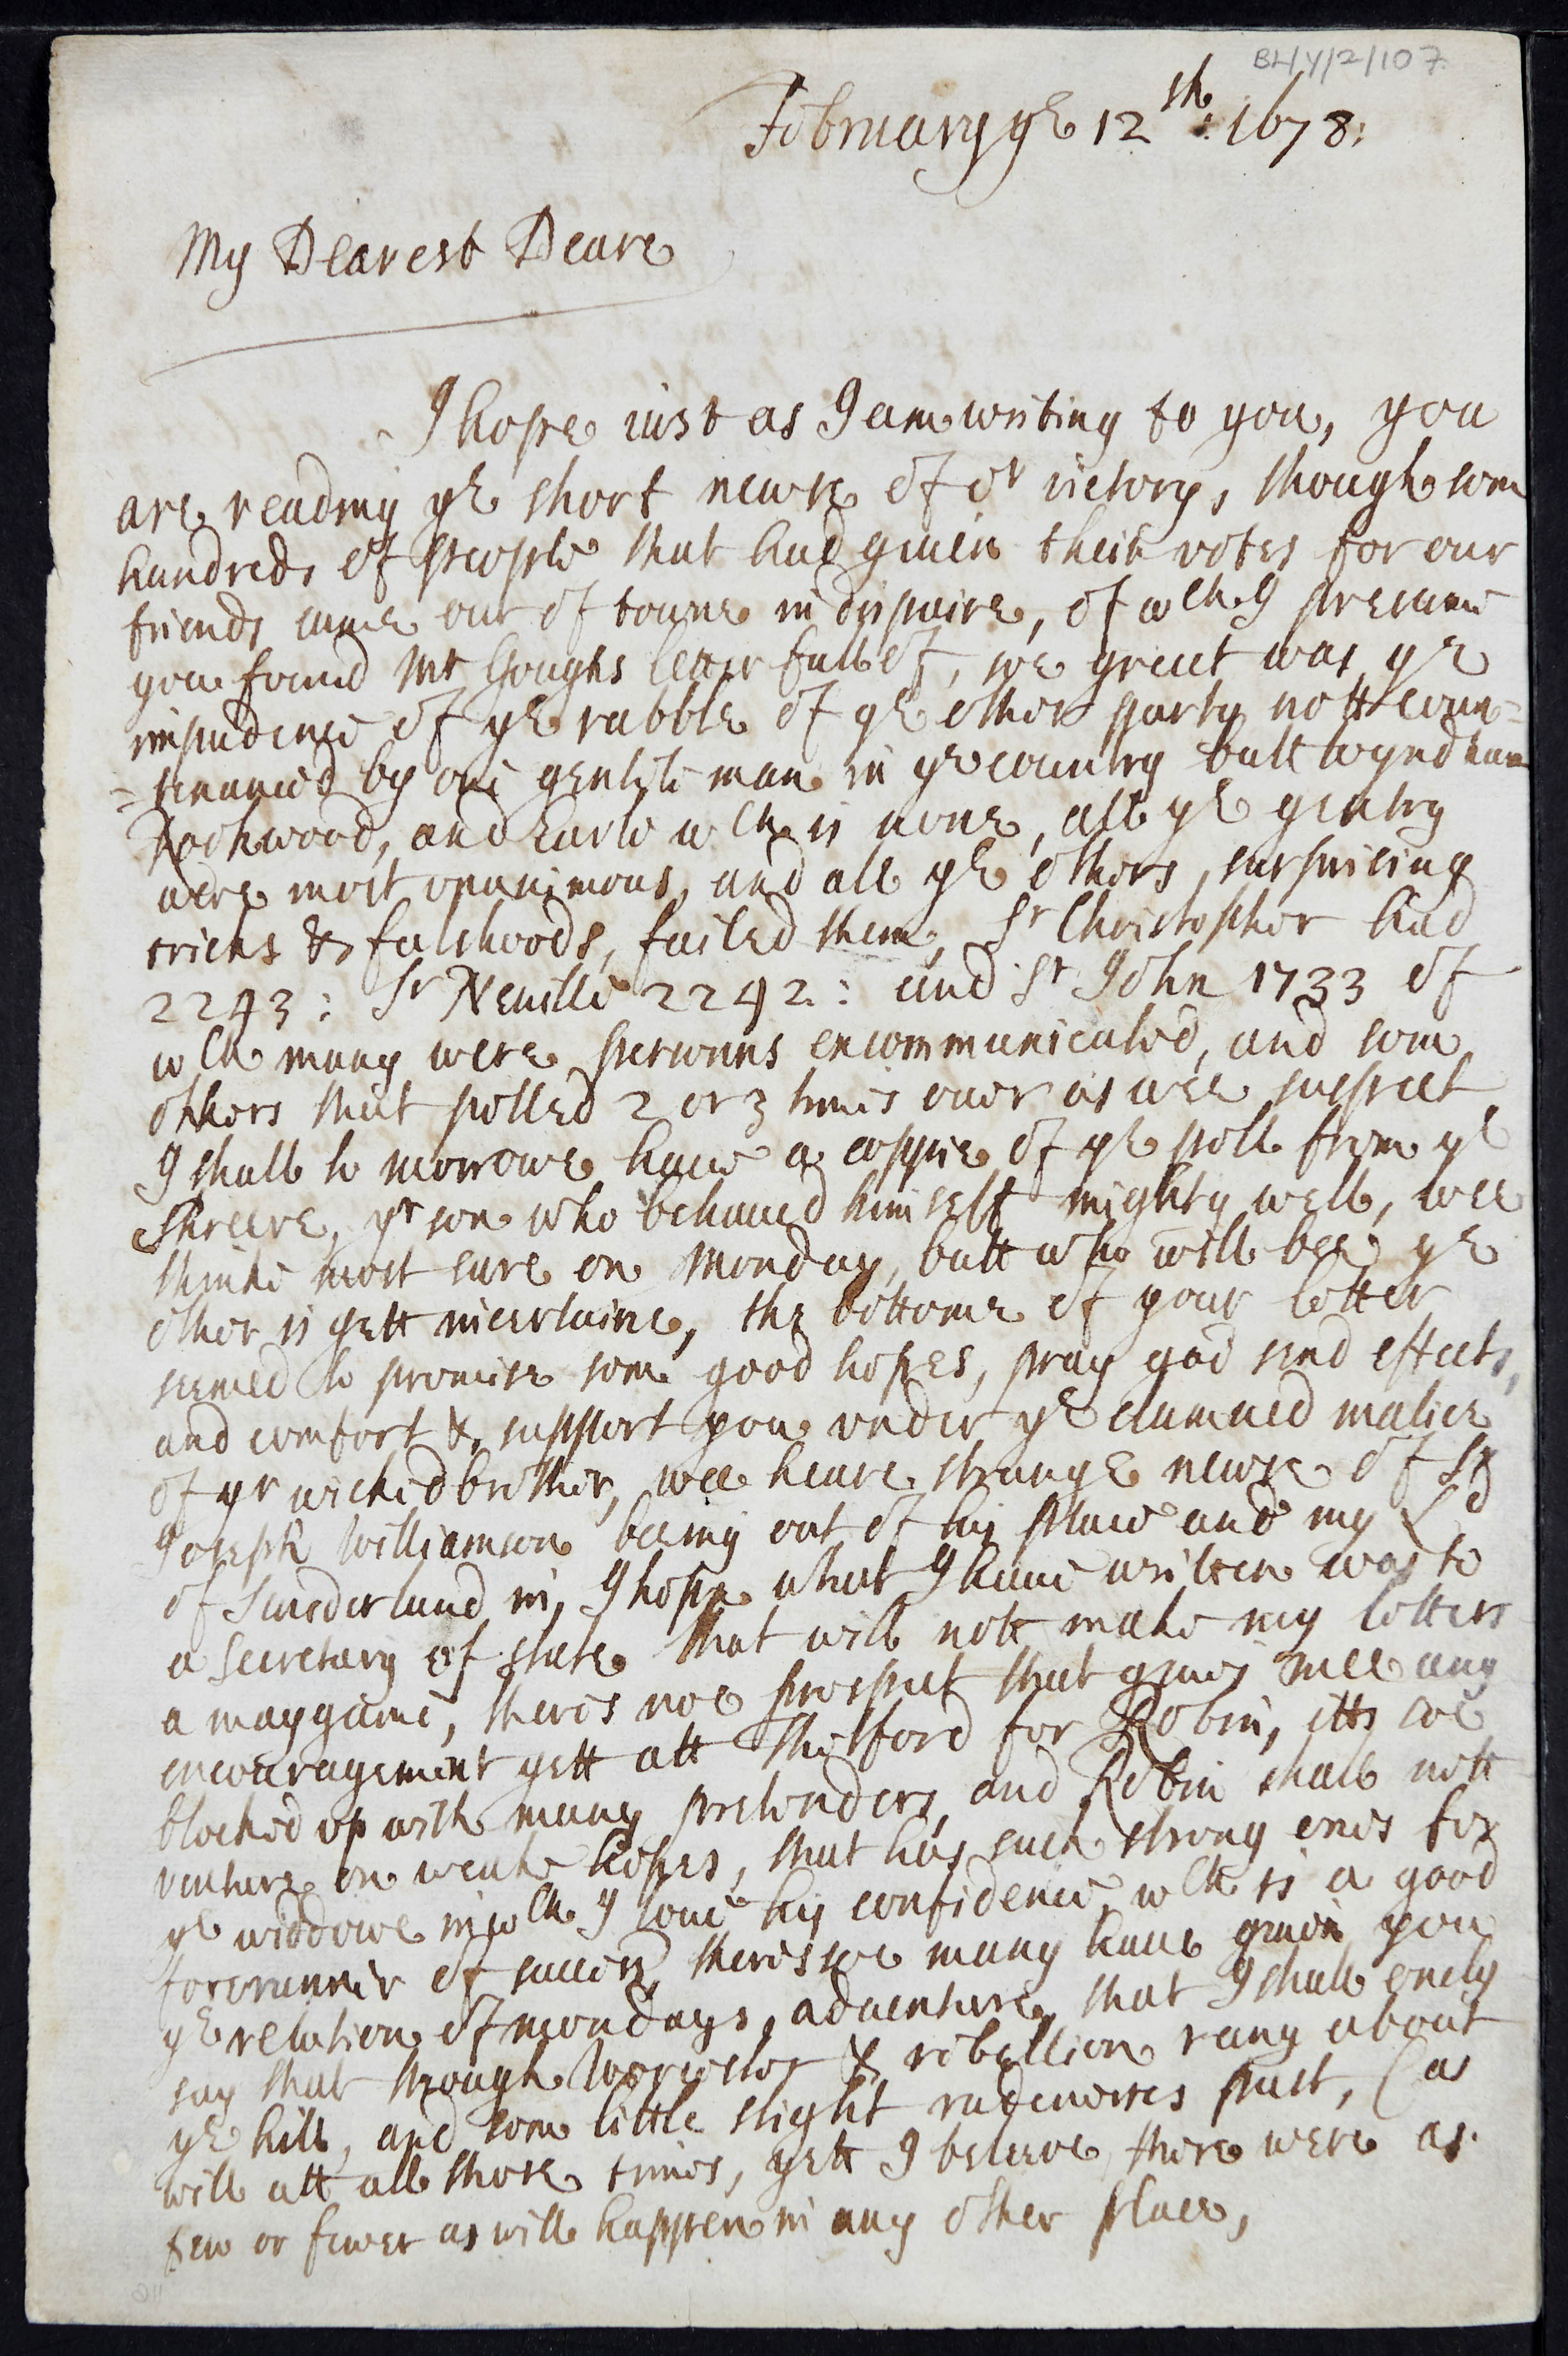 BL/Y/2/107
February ye 12th: 1678:
My Dearest Deare
I hope iust as I am writing to you, you
are reading ye short newse of or victory, though som
hundreds of people that had giuen their votes for our
friends came out of towne in dispaire, of wch I presume
you found Mr Goughs letter full of, soe great was ye
impudence of ye rabble of ye other party nott coun=
=tenanced by one gentleman in ye country butt Wyndham
Rookwood, and Earle wch is none, all ye gentry
were most vnanimous, and all ye others surprising
tricks & falshoods, failed them, Sr Christopher had
2243: Sr Neuille 2242: and Sr John 1733 of
wch many were persouns excommunicated, and som
others that polled 2 or 3 times ouer as wee suspect,
I shall to morrowe haue a coppie of ye poll from ye
Shreeve, yr son who behaued himself mighty well, wee
thinke most sure on Monday, butt who will bee ye
other is yett incertaine, the bottome of your letter
semed to promise som good hopes, pray god send effects,
and comfort & support you vnder ye damned malice
of yr wicked brother, wee heare strange newse of Sr
Joseph Williamson beeing out of his place and my Ld
of Sunderland in, I hope what I haue written was to
a secretary of state that will nott make my letters
a maygame, theres noe prospect that giues mee any
encouragement yett att Thetford for Robin, itts soe
blocked vp with many pretenders, and Robin shall nott
venture on weake hopes, that has such strong ones for
ye widdowe in wch I loue his confidence wch is a good
forerunner of succes, theres soe many haue giuen you
ye relation of mondays aduenture, that I shall onely
say that though Worcester & rebellion rang about
ye hill, and som little slight rudenesses past, (as
will att all those times, yett I beleeve there were as
few or fewer as will happen in any other place,